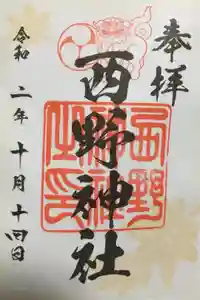 奉拝
西野神社
西野神社之印
令和二年十月十四日